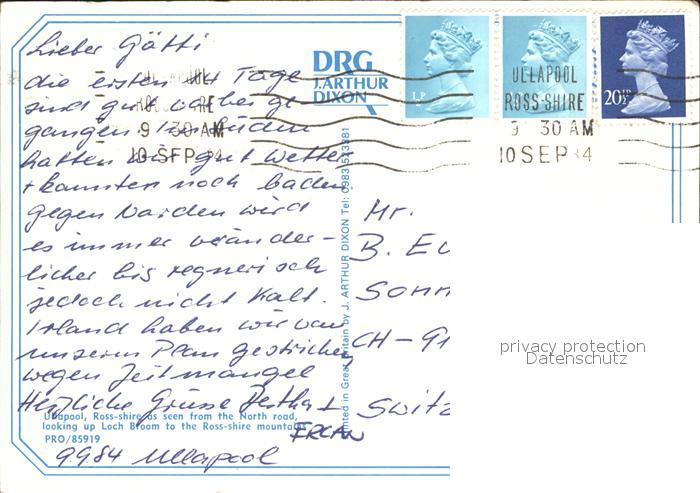 Lieber Götti
die ersten 14 Tage
sind gut vorbei ge-
gangen im Süden
hatten wir gut Wetter
+ konnten noch baden.
gegen Norden wird
es immer veränder-
licher bis regnerisch
jedoch nicht kalt.
Irland haben wir von
unserm Plan gestrichen
wegen Zeitmangel
Herzliche Grüsse Bertha +
ERCAN
9.9.84 Ullapool
Ullapool, Ross-shire as seen from the North road,
looking up Loch Broom to the Ross-shire mountains
PRO/85919
DRG
J.ARTHUR
DIXON
Printed in Great Britain by J. ARTHUR DIXON Tel: 0983 523381
½P
20½P
ULLAPOOL
ROSS-SHIRE
9 30 AM
10 SEP 84
ULLAPOOL
ROSS-SHIRE
9 30 AM
10 SEP 84
Mr.
B. Eu
Sonn
CH - 91
Switz
privacy protection
Datenschutz